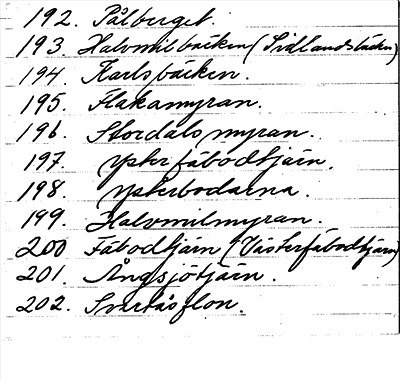 192. Pålberget.
193. Halvmilbäcken (Svallandsbäcken)
194. Karlsbäcken.
195. Flakamyran.
196. Stordalsmyran.
197. Ysterfäbodtjärn.
198. Ysterbodarna.
199. Halvmilmyran.
200 Fäbodtjärn (Västerfäbodtjärn)
201. Ångsjötjärn.
202. Svartåsflon.